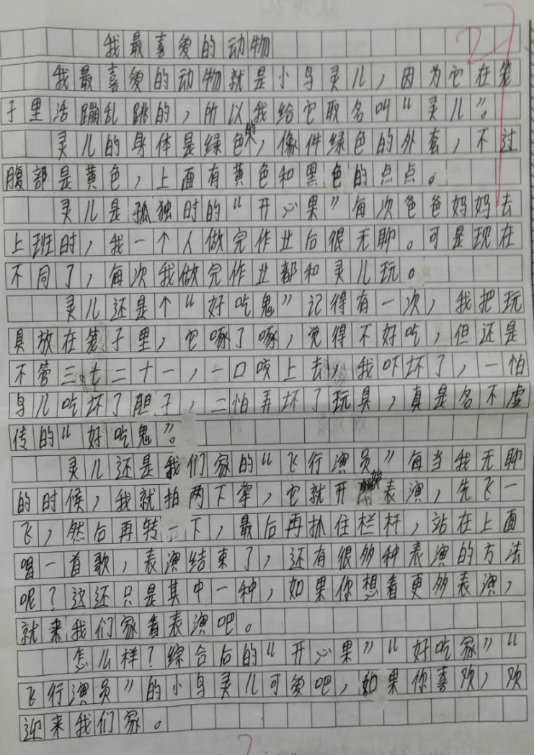 我最喜爱的动物
我最喜爱的动物就是小鸟灵儿，因为它在笼
子里活蹦乱跳的，所以我给它取名叫“灵儿”。
灵儿的身体是绿色的，像件绿色的外套，不过
腹部是黄色，上面有黄色和黑色的点点。
灵儿是孤独时的“开心果”每次爸爸妈妈去
上班时，我一个人做完作业后很无聊。可是现在
不同了，每次我做完作业都和灵儿玩。
灵儿还是个“好吃鬼”记得有一次，我把玩
具放在笼子里，它啄了啄，觉得不好吃，但还是
不管三七二十一，一口咬上去，我吓坏了，一怕
鸟儿吃坏了胆子，二怕弄坏了玩具，真是名不虚
传的“好吃鬼”。
灵儿还是我们家的“飞行演员”每当我无聊
的时候，我就拍两下掌，它就开始表演，先飞一
飞，然后再转一下，最后再抓住栏杆，站在上面
唱一首歌，表演结束了，还有很多种表演的方法
呢？这还只是其中一种，如果你想看更多表演，
就来我们家看表演吧。
怎么样？综合后的“开心果”“好吃家”“
飞行演员”的小鸟灵儿可爱吧，如果你喜欢，欢
迎来我们家。